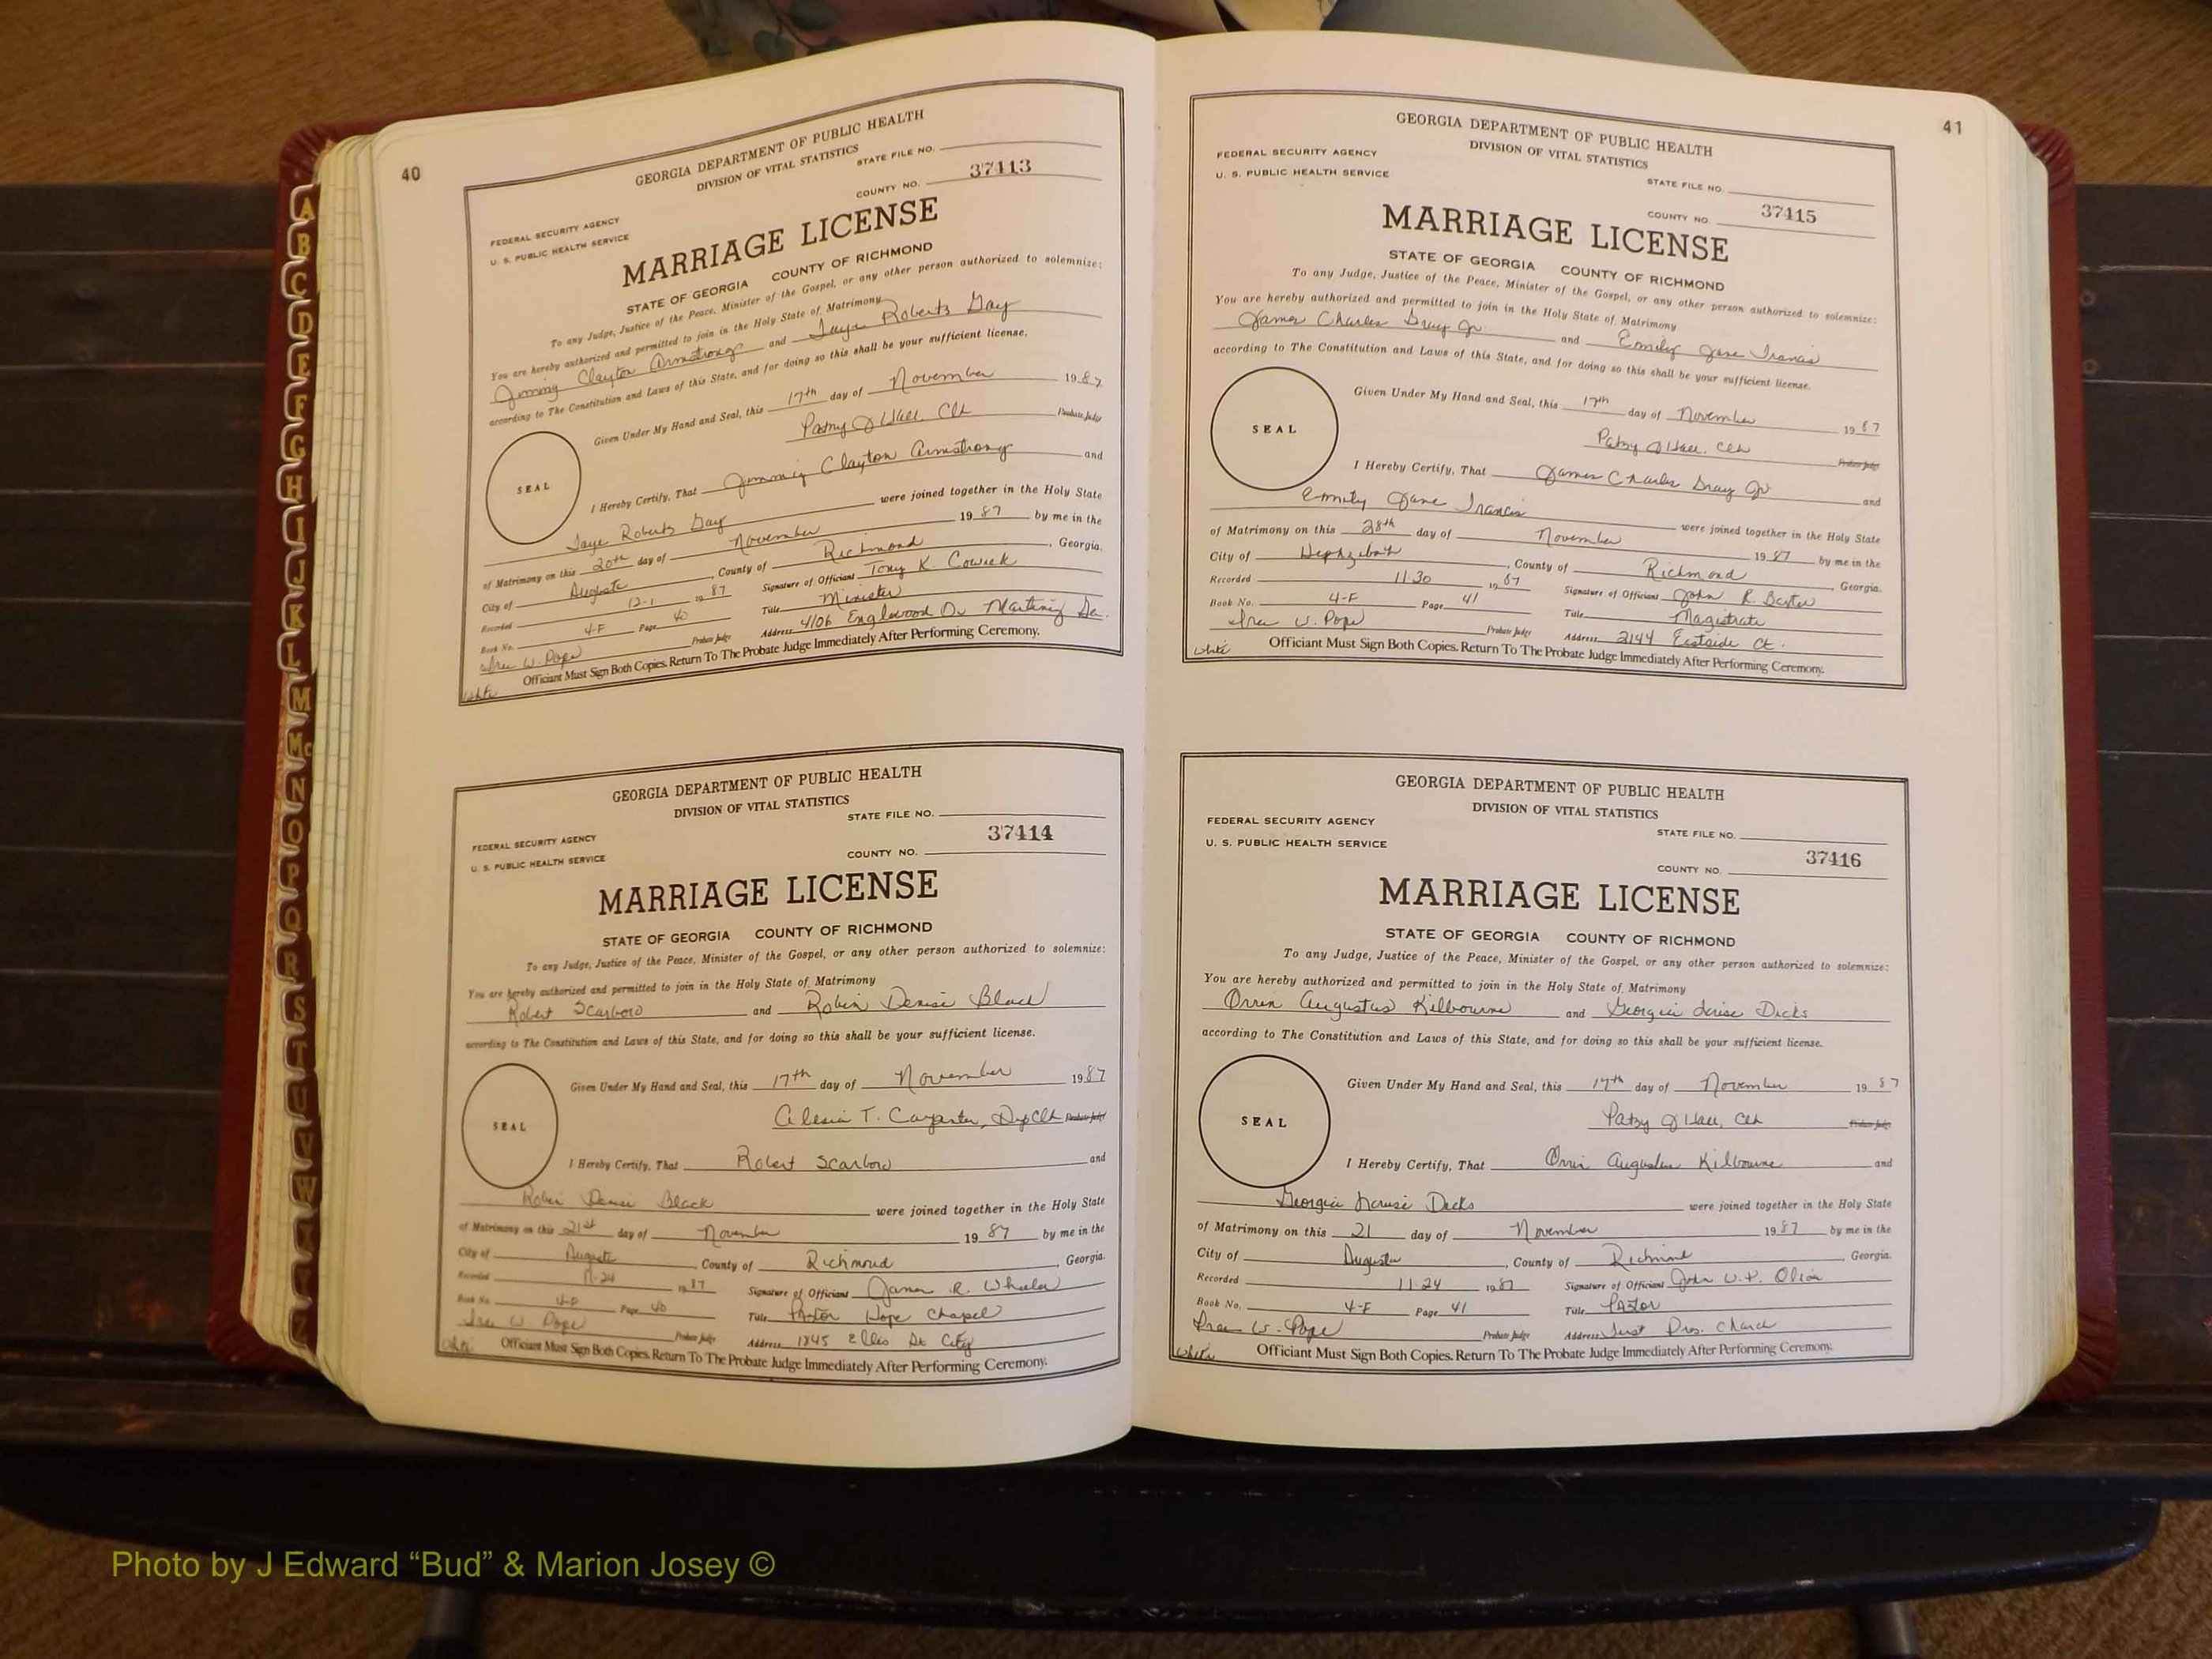 40
GEORGIA DEPARTMENT OF PUBLIC HEALTH
DIVISION OF VITAL STATISTICS
STATE FILE NO.
COUNTY NO. 37413
FEDERAL SECURITY AGENCY
U. S. PUBLIC HEALTH SERVICE
MARRIAGE LICENSE
STATE OF GEORGIA COUNTY OF RICHMOND
To any Judge, Justice of the Peace, Minister of the Gospel, or any other person authorized to solemnize:
You are hereby authorized and permitted to join in the Holy State of Matrimony
Jimmy Clayton Armstrong and Faye Roberts Gay
according to The Constitution and Laws of this State, and for doing so this shall be your sufficient license.
Given Under My Hand and Seal, this 17th day of November 1987
Patsy J Hall, Clk Probate Judge
SEAL
I Hereby Certify, That Jimmy Clayton Armstrong and
Faye Roberts Gay were joined together in the Holy State
of Matrimony on this 20th day of November 1987 by me in the
City of Augusta, County of Richmond, Georgia.
Recorded 12-1 1987 Signature of Officiant Tony K. Cowick
Book No. 4-F Page 40 Title Minister
Iree W. Pope Probate Judge Address 4106 Englewood Dr Martinez Ga.
Officiant Must Sign Both Copies. Return To The Probate Judge Immediately After Performing Ceremony.
White
GEORGIA DEPARTMENT OF PUBLIC HEALTH
DIVISION OF VITAL STATISTICS
STATE FILE NO.
FEDERAL SECURITY AGENCY
U. S. PUBLIC HEALTH SERVICE
COUNTY NO. 37414
MARRIAGE LICENSE
STATE OF GEORGIA COUNTY OF RICHMOND
To any Judge, Justice of the Peace, Minister of the Gospel, or any other person authorized to solemnize:
You are hereby authorized and permitted to join in the Holy State of Matrimony
Robert Scarboro and Robin Denise Black
according to The Constitution and Laws of this State, and for doing so this shall be your sufficient license.
Given Under My Hand and Seal, this 17th day of November 1987
Alesia T. Carpenter, Dep Clk Probate Judge
SEAL
I Hereby Certify, That Robert Scarboro and
Robin Denise Black were joined together in the Holy State
of Matrimony on this 21st day of November 1987 by me in the
City of Augusta, County of Richmond, Georgia.
Recorded 11-24 1987 Signature of Officiant James R. Wheeler
Book No. 4-F Page 40 Title Pastor Hope Chapel
Iree W. Pope Probate Judge Address 1845 Ellis St City
Officiant Must Sign Both Copies. Return To The Probate Judge Immediately After Performing Ceremony.
White
41
GEORGIA DEPARTMENT OF PUBLIC HEALTH
DIVISION OF VITAL STATISTICS
FEDERAL SECURITY AGENCY
U. S. PUBLIC HEALTH SERVICE
STATE FILE NO.
COUNTY NO. 37415
MARRIAGE LICENSE
STATE OF GEORGIA COUNTY OF RICHMOND
To any Judge, Justice of the Peace, Minister of the Gospel, or any other person authorized to solemnize:
You are hereby authorized and permitted to join in the Holy State of Matrimony
James Charles Gray Jr and Emily Jane Francis
according to The Constitution and Laws of this State, and for doing so this shall be your sufficient license.
Given Under My Hand and Seal, this 17th day of November 1987
Patsy J Hall, Clk Probate Judge
SEAL
I Hereby Certify, That James Charles Gray Jr and
Emily Jane Francis were joined together in the Holy State
of Matrimony on this 28th day of November 1987 by me in the
City of Hephzibah, County of Richmond, Georgia.
Recorded 11-30 1987 Signature of Officiant John R. Baxter
Book No. 4-F Page 41 Title Magistrate
Iree W. Pope Probate Judge Address 2144 Eastside Ct.
Officiant Must Sign Both Copies. Return To The Probate Judge Immediately After Performing Ceremony.
White
GEORGIA DEPARTMENT OF PUBLIC HEALTH
DIVISION OF VITAL STATISTICS
FEDERAL SECURITY AGENCY
U. S. PUBLIC HEALTH SERVICE
STATE FILE NO.
COUNTY NO. 37416
MARRIAGE LICENSE
STATE OF GEORGIA COUNTY OF RICHMOND
To any Judge, Justice of the Peace, Minister of the Gospel, or any other person authorized to solemnize:
You are hereby authorized and permitted to join in the Holy State of Matrimony
Orrin Augustus Kilbourne and Georgia Louise Dicks
according to The Constitution and Laws of this State, and for doing so this shall be your sufficient license.
Given Under My Hand and Seal, this 17th day of November 1987
Patsy J Hall, Clk Probate Judge
SEAL
I Hereby Certify, That Orrin Augustus Kilbourne and
Georgia Louise Dicks were joined together in the Holy State
of Matrimony on this 21 day of November 1987 by me in the
City of Augusta, County of Richmond, Georgia.
Recorded 11-24 1987 Signature of Officiant John W. P. Oliver
Book No. 4-F Page 41 Title Pastor
Iree W. Pope Probate Judge Address First Pres. Church
Officiant Must Sign Both Copies. Return To The Probate Judge Immediately After Performing Ceremony.
White
A
B
C
D
E
F
G
H
I
J
K
L
M
Mc
N
O
P
Q
R
S
T
U
V
W
X
Y
Z
Photo by J Edward “Bud” & Marion Josey ©